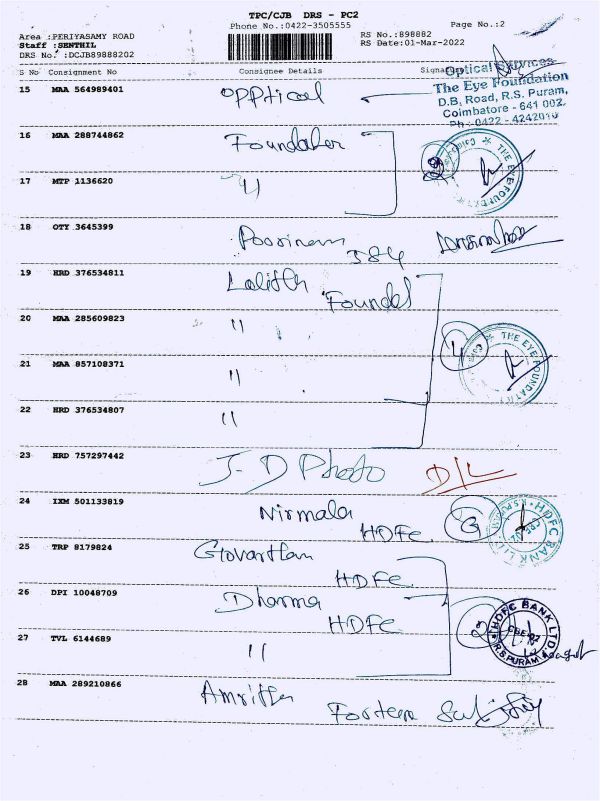 TPC/CJB DRS - PC2
Phone No.:0422-3505555 Page No.:2
Area :PERIYASAMY ROAD RS No.:898882
Staff :SENTHIL RS Date:01-Mar-2022
DRS No. :DCJB89888202
S No Consignment No Consignee Details Signature
Optical Services
The Eye Foundation
D.B. Road, R.S. Puram,
Coimbatore - 641 002.
Ph : 0422 - 4242010
15 MAA 564989401 oppticol
16 MAA 288744862 Foundaher
THE EYE FOUNDATION
17 MTP 1136620 "
18 OTY 3645399 Poorinam
384
19 HRD 376534811 Lalith
Foundel
20 MAA 285609823 "
4
THE EYE FOUNDATION
21 MAA 857108371 "
22 HRD 376534807 "
23 HRD 757297442 J-D Photo D/L
24 IXM 501133819 Nirmala
HDFC
3
HDFC BANK LTD
25 TRP 8179824 Govarthan
HDFC
26 DPI 10048709 Dharma
HDFC
2
HDFC BANK LTD.
CBE
R.S.PURAM
27 TVL 6144689 "
28 MAA 289210866 Amritha